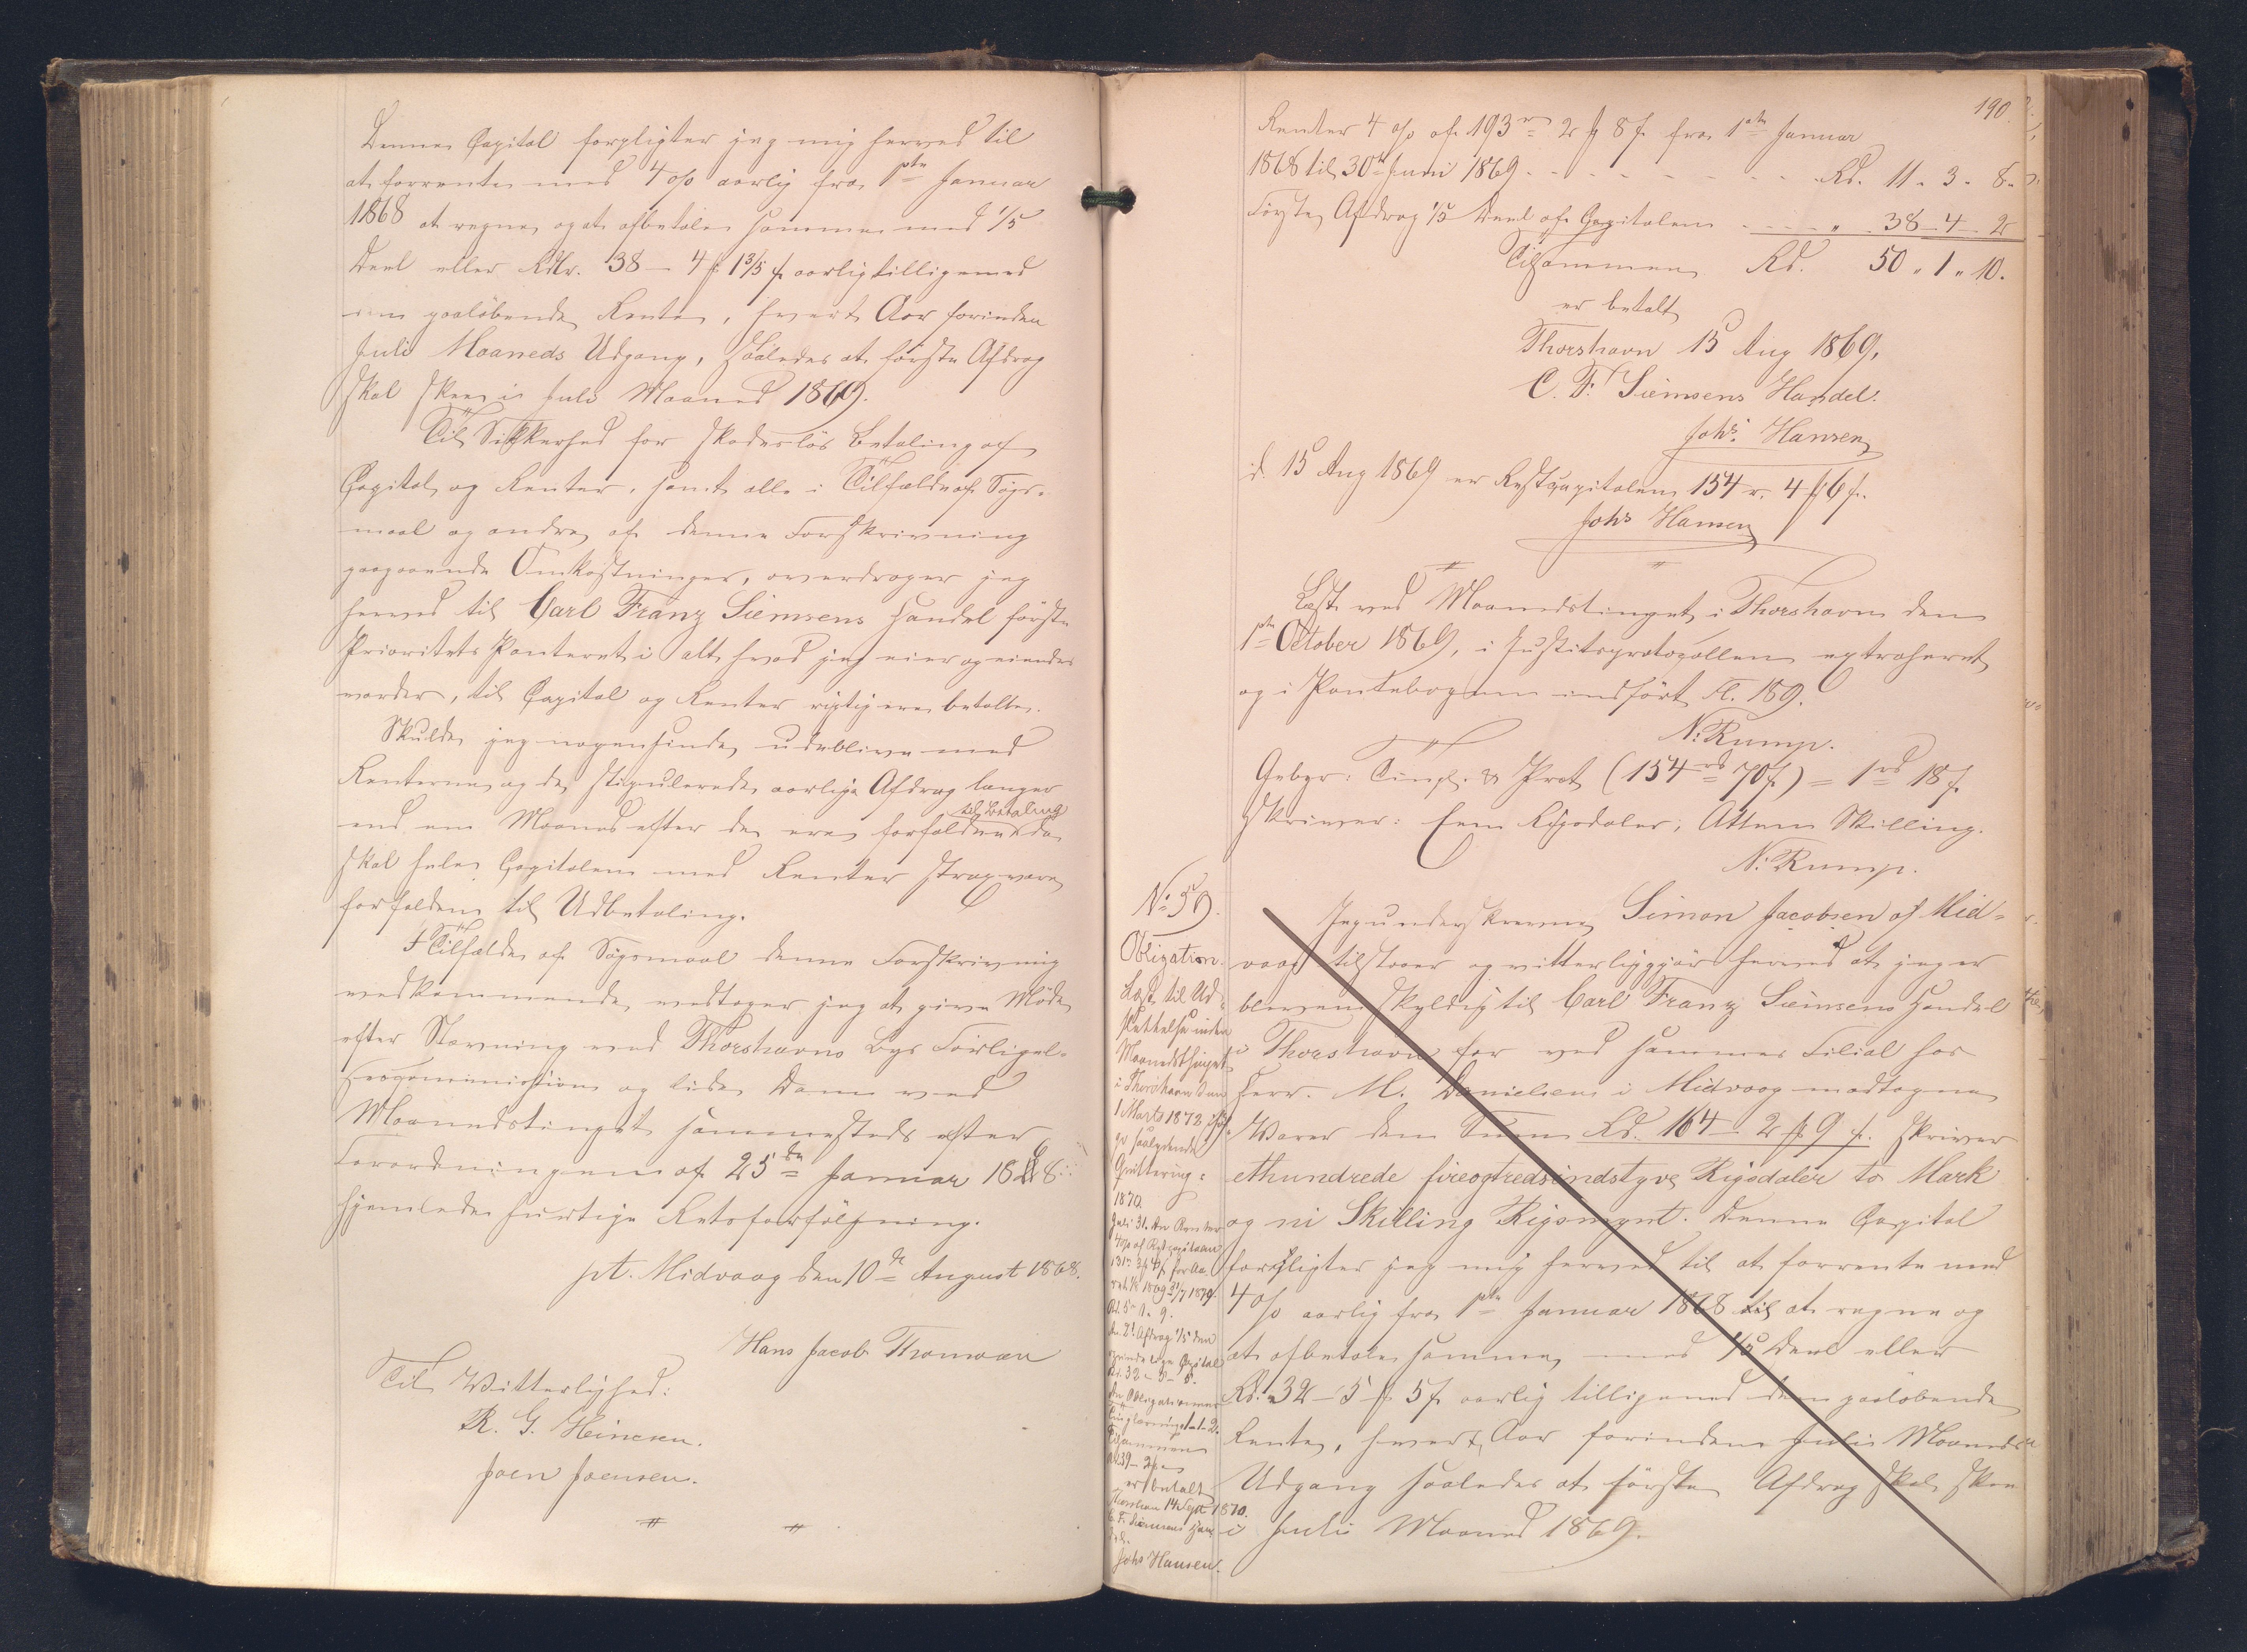 Denne Capital forpligter jeg mig herved til
at forrente med 4 o/o aarlig fra 1ste Januar
1868 at regne, og at afbetale samme med 1/5
Deel eller Rdlr. 38 - 4 ꝑ 1 3/5 ſ. aarlig tilligemed
den paaløbende Rente, hvert Aar forinden
Juli Maaneds Udgang, saaledes at første Afdrag
skal skee i Juli Maaned 1869.
Til Sikkerhed for skadesløs Betaling af
Capital og Renter, samt alle i Tilfælde af Søgs-
maal og andre af denne Forskrivning
paagaaende Omkostninger, overdrager jeg
herved til Carl Franz Siemsens Handel første
Prioritets Panteret i alt hvad jeg eier og eiendes
vorder, til Capital og Renter rigtig ere betalte.
Skulde jeg nogensinde udeblive med
Renterne og de stipulerede aarlige Afdrag længer
til Betaling
end een Maaned efter de ere forfaldne da
skal hele Capitalen med Renter strax være
forfalden til Udbetaling.
I Tilfælde af Søgsmaal denne Forskrivning
vedkommende vedtager jeg at give Møde
efter Stævning ved Thorshavns Byes Forligel-
sescommission og lide Dom ved
Maanedstinget sammesteds efter
Forordningen af 25de Januar 1828
hjemlede hurtige Retsforfølgning.
pt. Midvaag den 10de August 1868.
Hans Jacob Thomsen
Til Vitterlighed:
R. G. Heinesen.
Joen Joensen.
190.
Renter 4 o/o af 193 rd 2 ꝑ 8 ſ. fra 1ste Januar
1868 til 30te Juni 1869 - - - - - Rd. 11 - 3 - 8 -
Første Afdrag 1/5 Deel af Capitalen - - - - " 38 - 4 - 2
Tilsammen Rd. 50 " 1 " 10.
er betalt
Thorshavn 15 Aug 1869,
C. F. Siemsens Handel.
Johs. Hansen
d. 15 Aug 1869 er Restcapitalen 154 r. 4 ꝑ 6 ſ.
Johs Hansen
Læst ved Maanedstinget i Thorshavn den
1ste October 1869, i Justitsprotocollen extraheret
og i Pantebogen indført Fl. 189.
N: Rump.
Gebyr: Tingl. & Prot (154 rd 70 ſ) = 1 rd 18 ſ.
skriver: Een Rigsdaler, Atten Skilling.
N: Rump.
No: 59.
Obligation.
Læst til Ud-
slettelse inden
Maanedsthinget
i Thorshavn den
1 Marts 1872 iføl-
ge saalydende
Quittering:
1870.
Juli 31. An Renter
4 o/o af Restcapitalen
131 r 3 ꝑ 4 ſ for Aa-
ret 1/8 1869 31/7 1870.
Rd. 5 - 1 - 9.
An 2det Afdrag 1/5 Deel
oprindelige Capital
Rd. 32 - 5 - 5.
An Obligationens
Tinglæsning 1 - 1 - 2.
Tilsammen
Rd 39 - 2
er betalt
Thorshavn 14 Sept 1870.
C. F. Siemsens Han-
del.
Johs Hansen.
Jeg underskrevne Simon Jacobsen af Mid-
vaag tilstaaer og vitterliggjør herved at jeg er
bleven skyldig til Carl Franz Siemsens Handel
i Thorshavn for ved sammes Filial hos
Herr. M. Danielsen i Midvaag modtagne
Varer den Sum Rd. 164 - 2 ꝑ 9 ſ. skriver
ethundrede fireogtredsindstyve Rigsdaler to Mark
og ni Skilling Rigsmynt. Denne Capital
forpligter jeg mig herved til at forrente med
4 o/o aarlig fra 1ste Januar 1868 til at regne og
at afbetale samme med 1/5 Deel eller
Rd. 32 - 5 ꝑ 5 ſ. aarlig tilligemed den paaløbende
Rente, hvert Aar forinden Julii Maaneds
Udgang saaledes at første Afdrag skal skee
i Julii Maaned 1869.